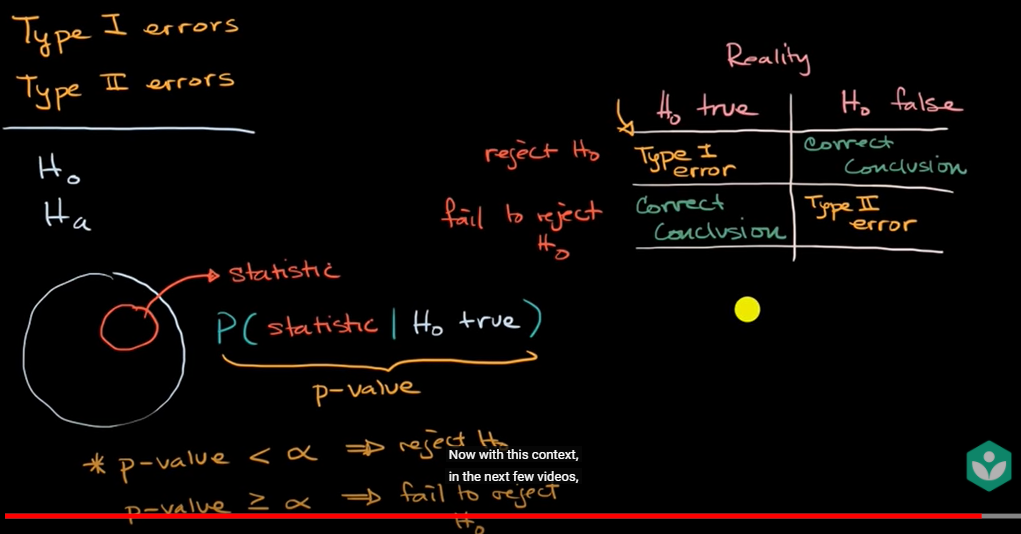 Type I errors
Type II errors
H₀
Hₐ
statistic
P( statistic | H₀ true )
p-value
* p-value < α ⇒ reject H₀
p-value ≥ α ⇒ fail to reject
H₀
Reality
H₀ true
H₀ false
reject H₀
Type I
error
Correct
Conclusion
fail to reject
H₀
Correct
Conclusion
Type II
error
Now with this context,
in the next few videos,